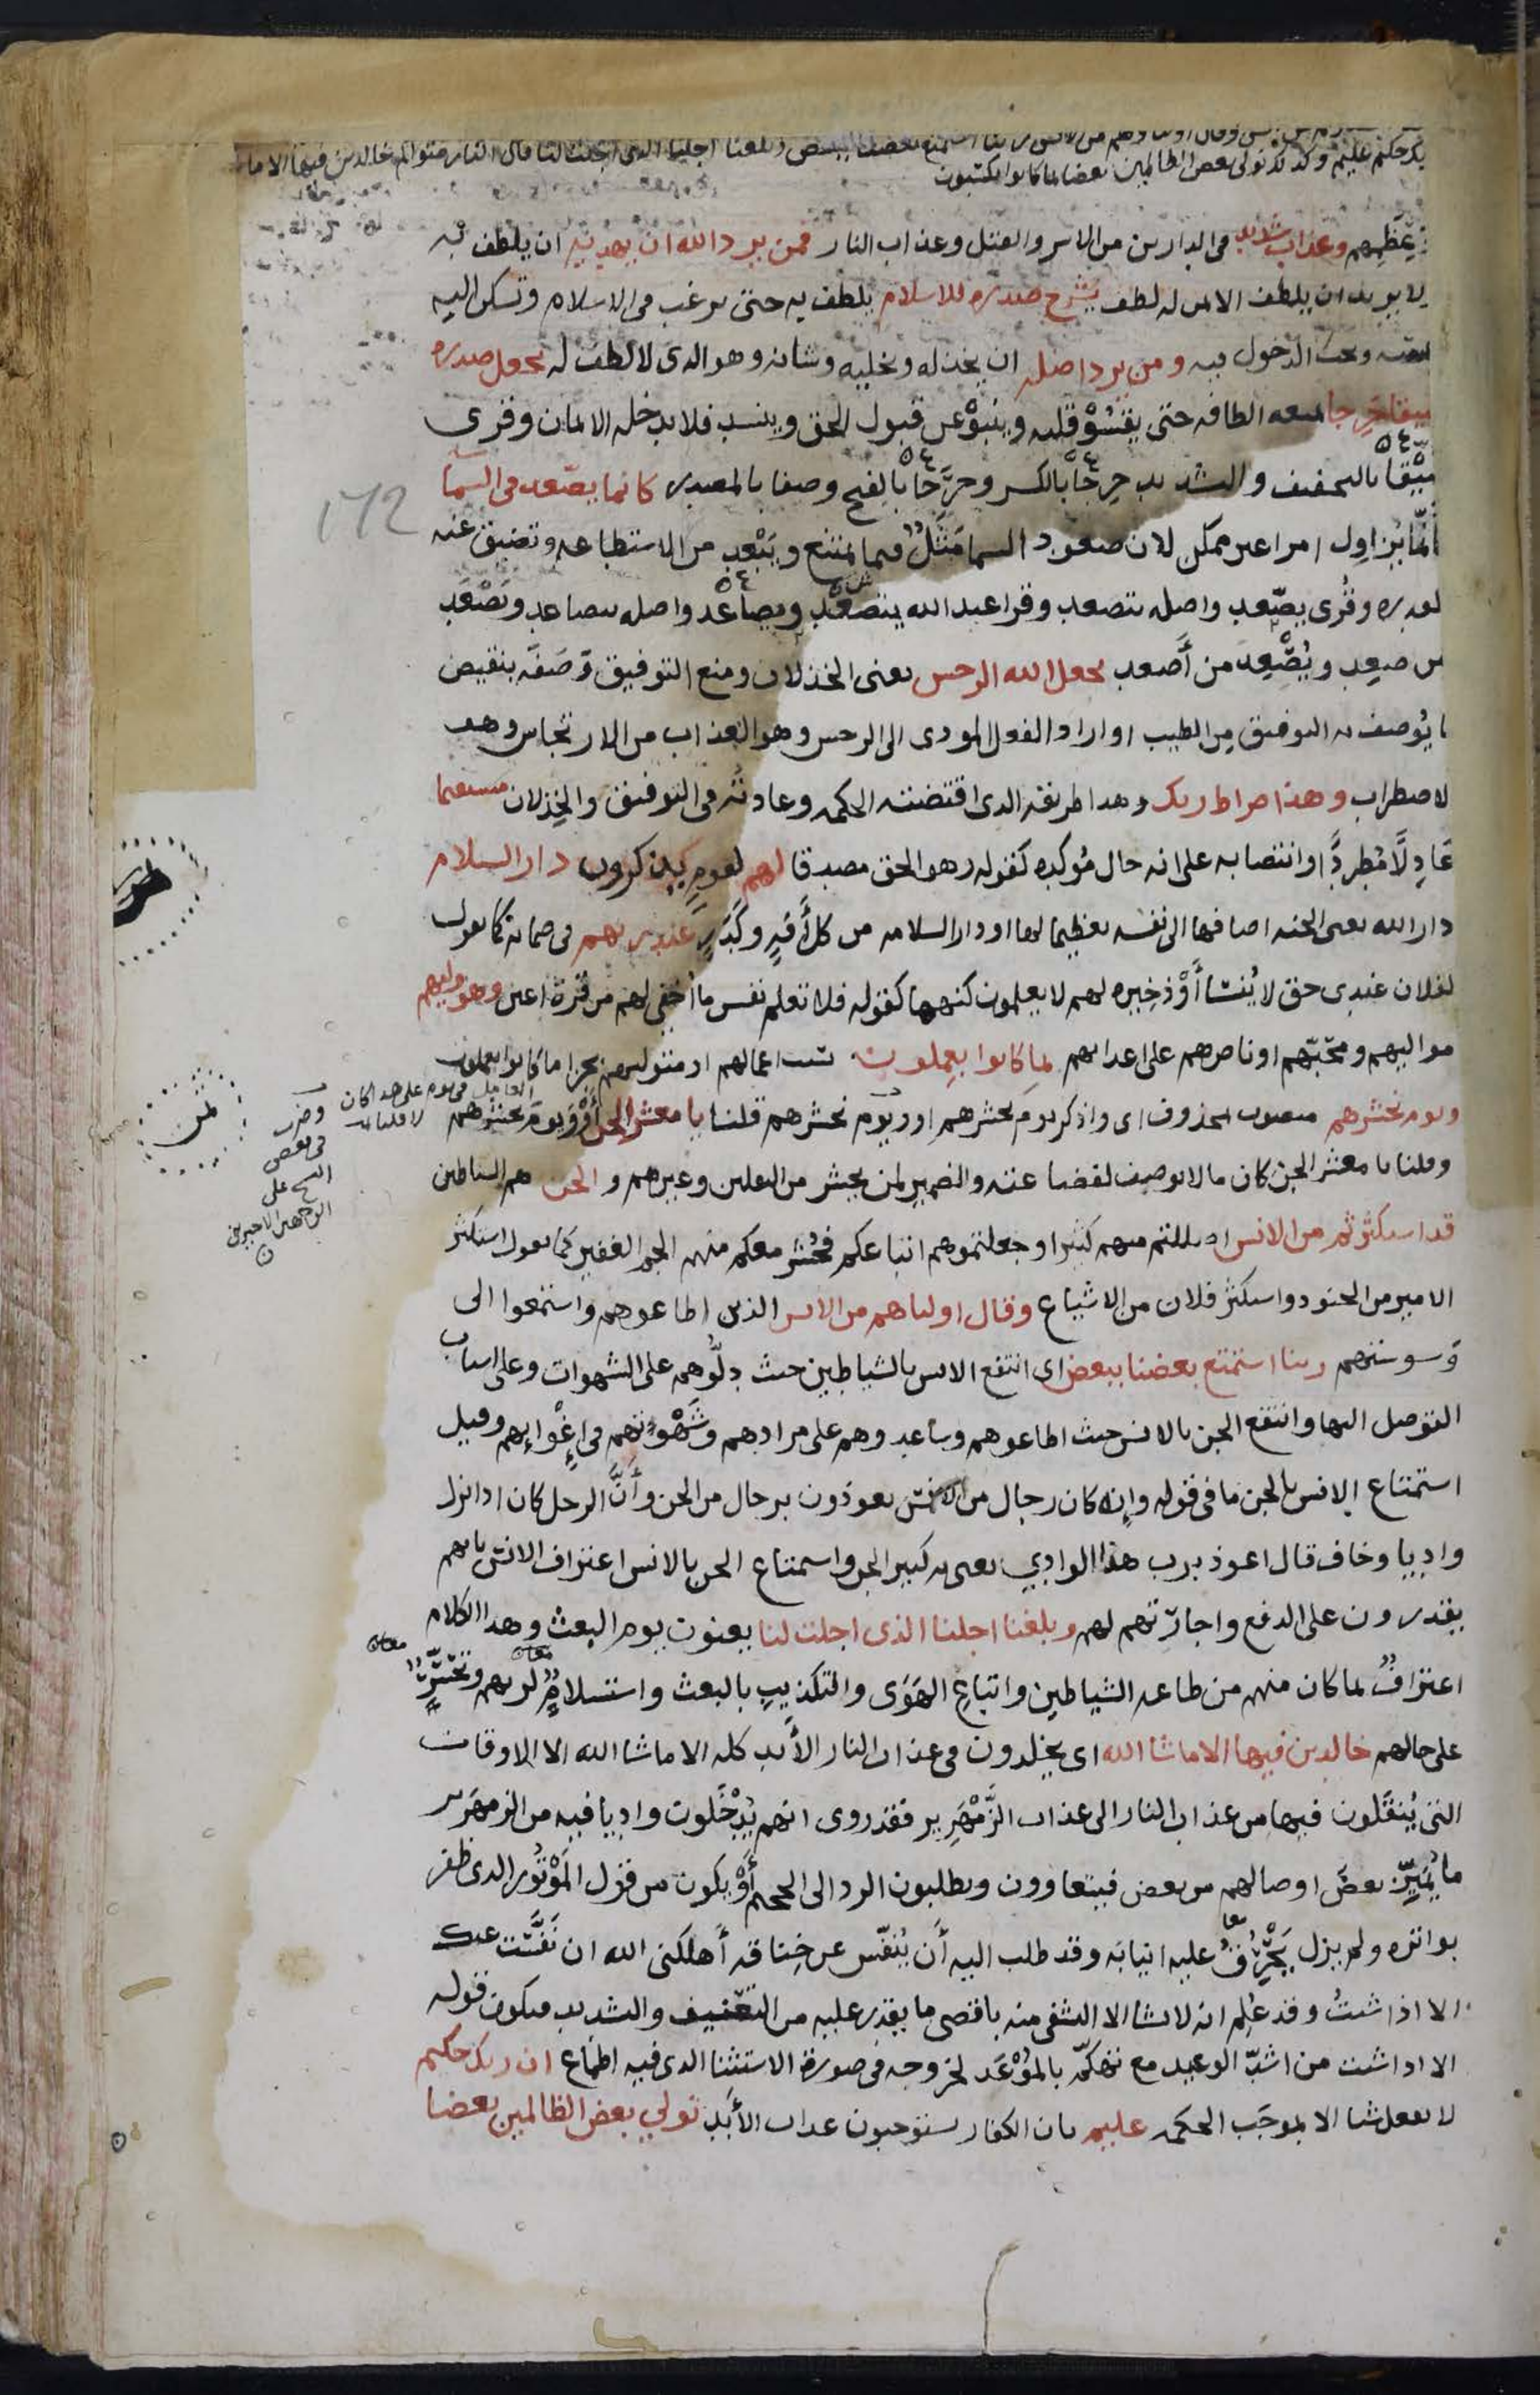 يك حكيم عليم وكذلك نولى بعض الظالمين بعضا بما كانوا يكسبون
وعذاب شديد فى الدارين من الاسر والقتل وعذاب النار فمن يرد الله ان يهديه ان يلطف به
لا يريد ان يلطف الا بمن له لطف يشرح صدره للاسلام يلطف به حتى يرغب فى الاسلام وتسكن اليه
نفسه ويحب الدخول فيه ومن يرد ان يضله ان يخذله ويخليه وشانه وهو الذى لا لطف له يجعل صدره
ضيقا حرجا يمنعه الطافه حتى يقسو قلبه وينبو عن قبول الحق وينسد فلا يدخله الايمان وقرى
ضيقا بالتخفيف والتشديد حرجا بالكسر وحرجا بالفتح وصفا بالمصدر كانما يصعد فى السما
كانما يزاول امرا غير ممكن لان صعود السما مثل فيما يمتنع ويبعد من الاستطاعه وتضيق عنه
المقدره وقرى يصعد واصله يتصعد وقرا عبد الله يتصعد ويصاعد واصله يتصاعد ويصعد
من صعد ويصعد من أصعد يجعل الله الرجس يعنى الخذلان ومنع التوفيق وصفه بنقيض
ما يوصف به التوفيق من الطيب او اراد الفعل المودى الى الرجس وهو العذاب من الارتجاس وهو
الاضطراب وهذا صراط ربك وهذا طريقه الذى اقتضته الحكمه وعادته فى التوفيق والخذلان مستقيما
عادلا مطردا وانتصابه على انه حال مؤكده كقوله وهو الحق مصدقا لقوم يذكرون لهم دار السلام
دار الله يعنى الجنه اضافها الى نفسه تعظيما لها او دار السلامه من كل أفه وكدر عند ربهم فى ضمانه كما تقول
لفلان عندى حق لا ينسا أو ذخيره لهم لا يعلمون كنهها كقوله فلا تعلم نفس ما أخفى لهم من قرة اعين وهو وليهم
مواليهم ومحبهم او ناصرهم على اعدايهم بما كانوا يعملون بسبب اعمالهم او متوليهم بجزا ما كانوا يعملون
ويوم نحشرهم منصوب بمحذوف اى واذكر يوم نحشرهم او ويوم نحشرهم قلنا يا معشر الجن أو ويوم نحشرهم
وقلنا يا معشر الجن كان ما لا يوصف لفظاعته والضمير لمن يحشر من الثقلين وغيرهم والجن هم الشياطين
قد استكثرتم من الانس اضللتم منهم كثيرا وجعلتموهم اتباعكم فحشر معكم منهم الجم الغفير كما تقول استكثر
الامير من الجنود واستكثر فلان من الاشياع وقال اولياهم من الانس الذين اطاعوهم واستمعوا الى
وسوستهم ربنا استمتع بعضنا ببعض اى انتفع الانس بالشياطين حيث دلوهم على الشهوات وعلى اسباب
التوصل اليها وانتفع الجن بالانس حيث اطاعوهم وساعدوهم على مرادهم وشهوتهم فى إغوايهم وقيل
استمتاع الانس بالجن ما فى قوله وإنه كان رجال من الانس يعوذون برجال من الجن وأن الرجل كان اذا نزل
واديا وخاف قال اعوذ برب هذا الوادي يعنى به كبير الجن واستمتاع الجن بالانس اعتراف الانس بانهم
يقدرون على الدفع واجارتهم لهم وبلغنا اجلنا الذى اجلت لنا يعنون يوم البعث وهذا الكلام
اعتراف بما كان منهم من طاعه الشياطين واتباع الهوى والتكذيب بالبعث واستسلام لربهم وتحسر
على حالهم خالدين فيها الا ما شا الله اى يخلدون فى عذاب النار الأبد كله الا ما شا الله الا الاوقات
التى ينقلون فيها من عذاب النار الى عذاب الزمهرير فقد روى انهم يدخلون واديا فيه من الزمهرير
ما يميز بعض اوصالهم من بعض فيتعاوون ويطلبون الرد الى الجحيم أو يكون من قول الموتور الذى ظفر
بواتره ولم يزل يحرق عليه انيابه وقد طلب اليه أن ينفس عن خناقه أهلكنى الله ان نفست عنك
الا اذا شئت وقد علم انه لا يشا الا التشفى منه باقصى ما يقدر عليه من التعنيف والتشديد فيكون قوله
الا اذا شئت من اشد الوعيد مع تهكم بالموعد لخروجه فى صورة الاستثنا الذى فيه اطماع ان ربك حكيم
لا يفعل شيا الا بموجب الحكمه عليم بان الكفار يستوجبون عذاب الأبد نولي بعض الظالمين بعضا
١٧٢
العامل فى يوم على هذا كان
وضرب
فى بعض
النسخ على
الوجهين الاخيرين
ثمن
معا